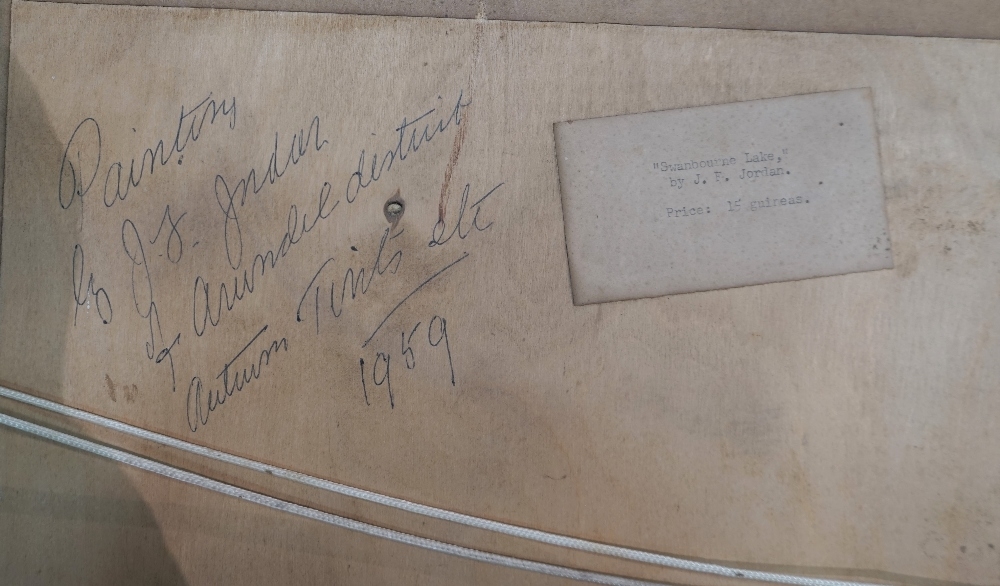 Painting
by J. F. Jordan
of Arundel district
Autumn Tints etc
1959
"Swanbourne Lake,"
by J. F. Jordan.
Price: 15 guineas.